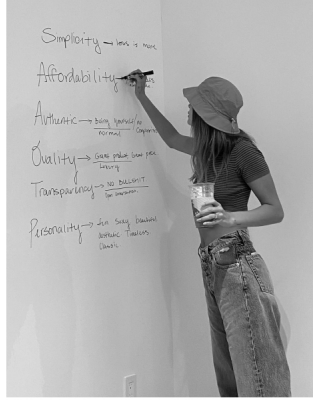 Simplicity → less is more
Affordability
Authentic → Being yourself
normal
Quality → Great product lower price
Luxury
Transparency → NO BULLSHIT
Personality → fun Sexy beautiful
aesthetic Timeless
Classic